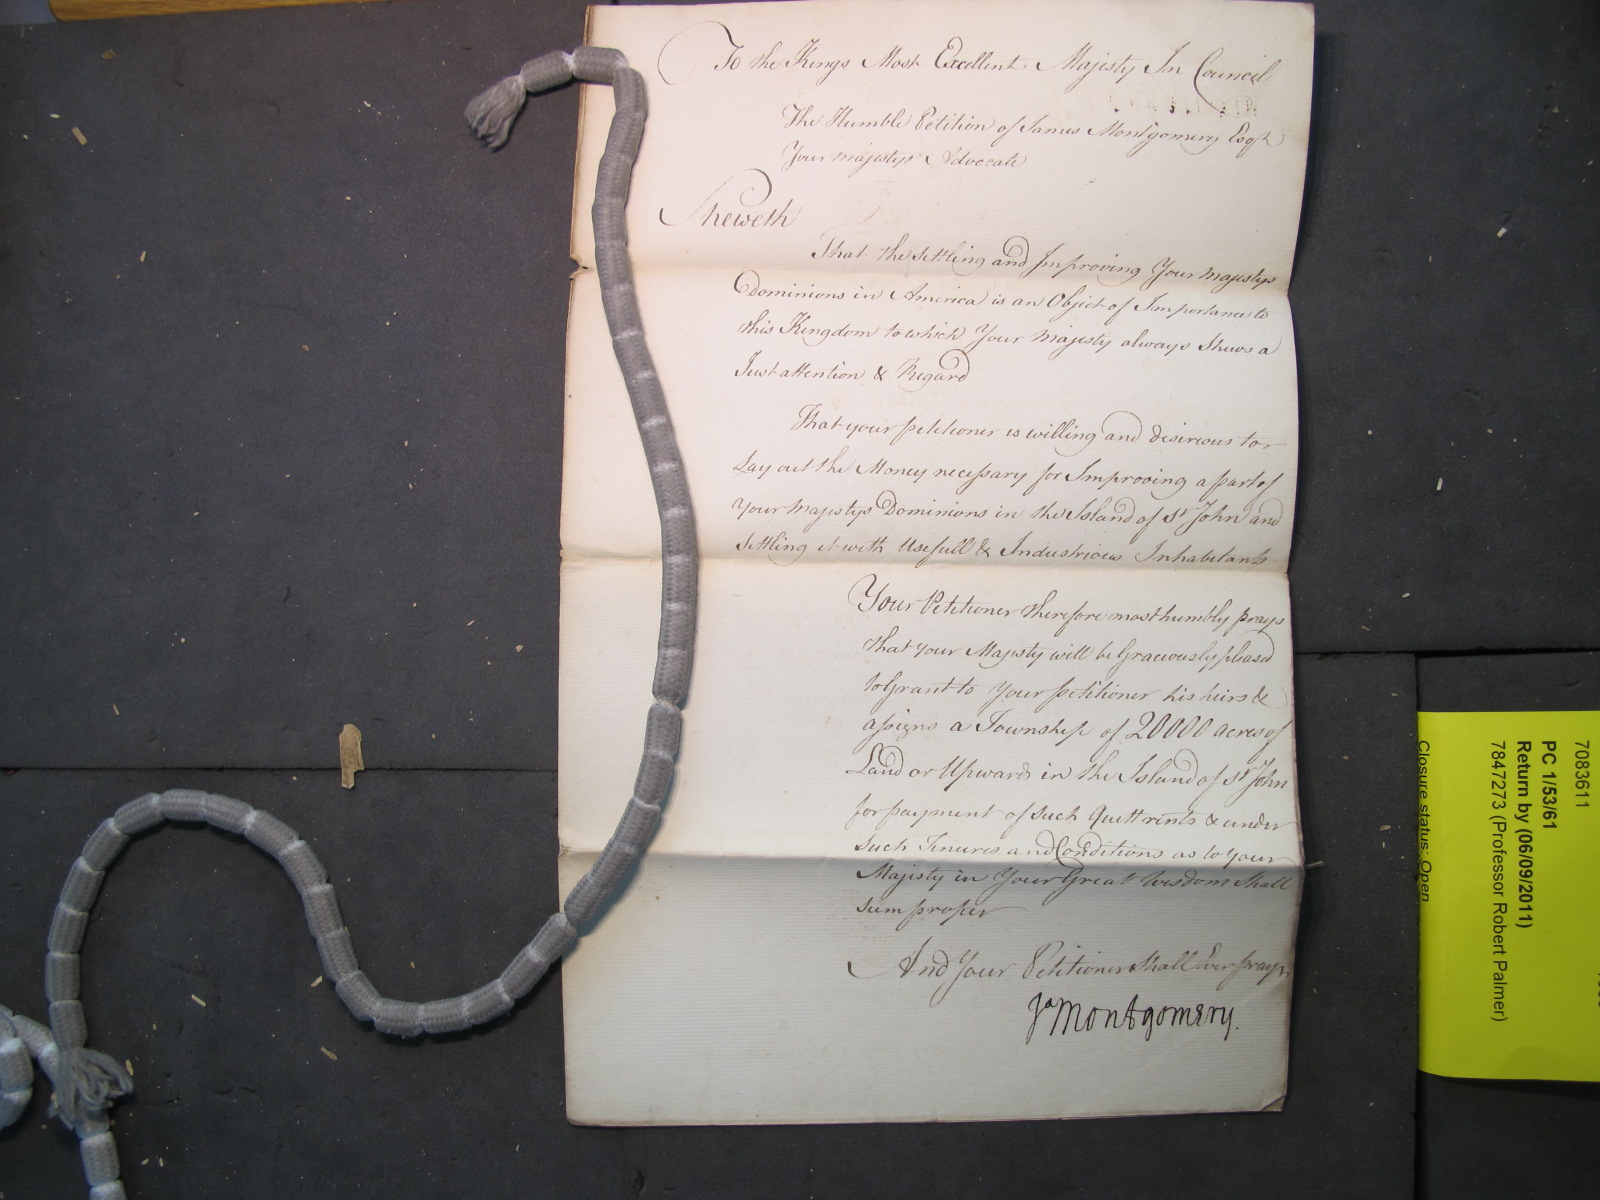 To the Kings Most Excellent Majesty In Council
The Humble Petition of James Montgomery Esqr
Your Majestys Advocate
Sheweth
That the settling and Improving Your Majestys
Dominions in America is an Object of Importance to
this Kingdom to which Your Majesty always Shews a
Just attention & Regard
That your petitioner is willing and desireous to
Lay out the Money necessary for Improving a part of
Your Majestys Dominions in the Island of St John and
Settling it with Usefull & Industrious Inhabitants
Your Petitioner therefore most humbly prays
that your Majesty will be Graciously pleased
to Grant to Your petitioner his heirs &
assigns a Township of 20000 acres of
Land or Upwards in the Island of St John
for payment of such Quitt rents & under
such Tenures and Conditions as to Your
Majesty in Your Great Wisdom shall
seem proper
And Your Petitioner shall Ever pray
Ja Montgomery.
7083611
PC 1/53/61
Return by (06/09/2011)
7847273 (Professor Robert Palmer)
Closure status: Open